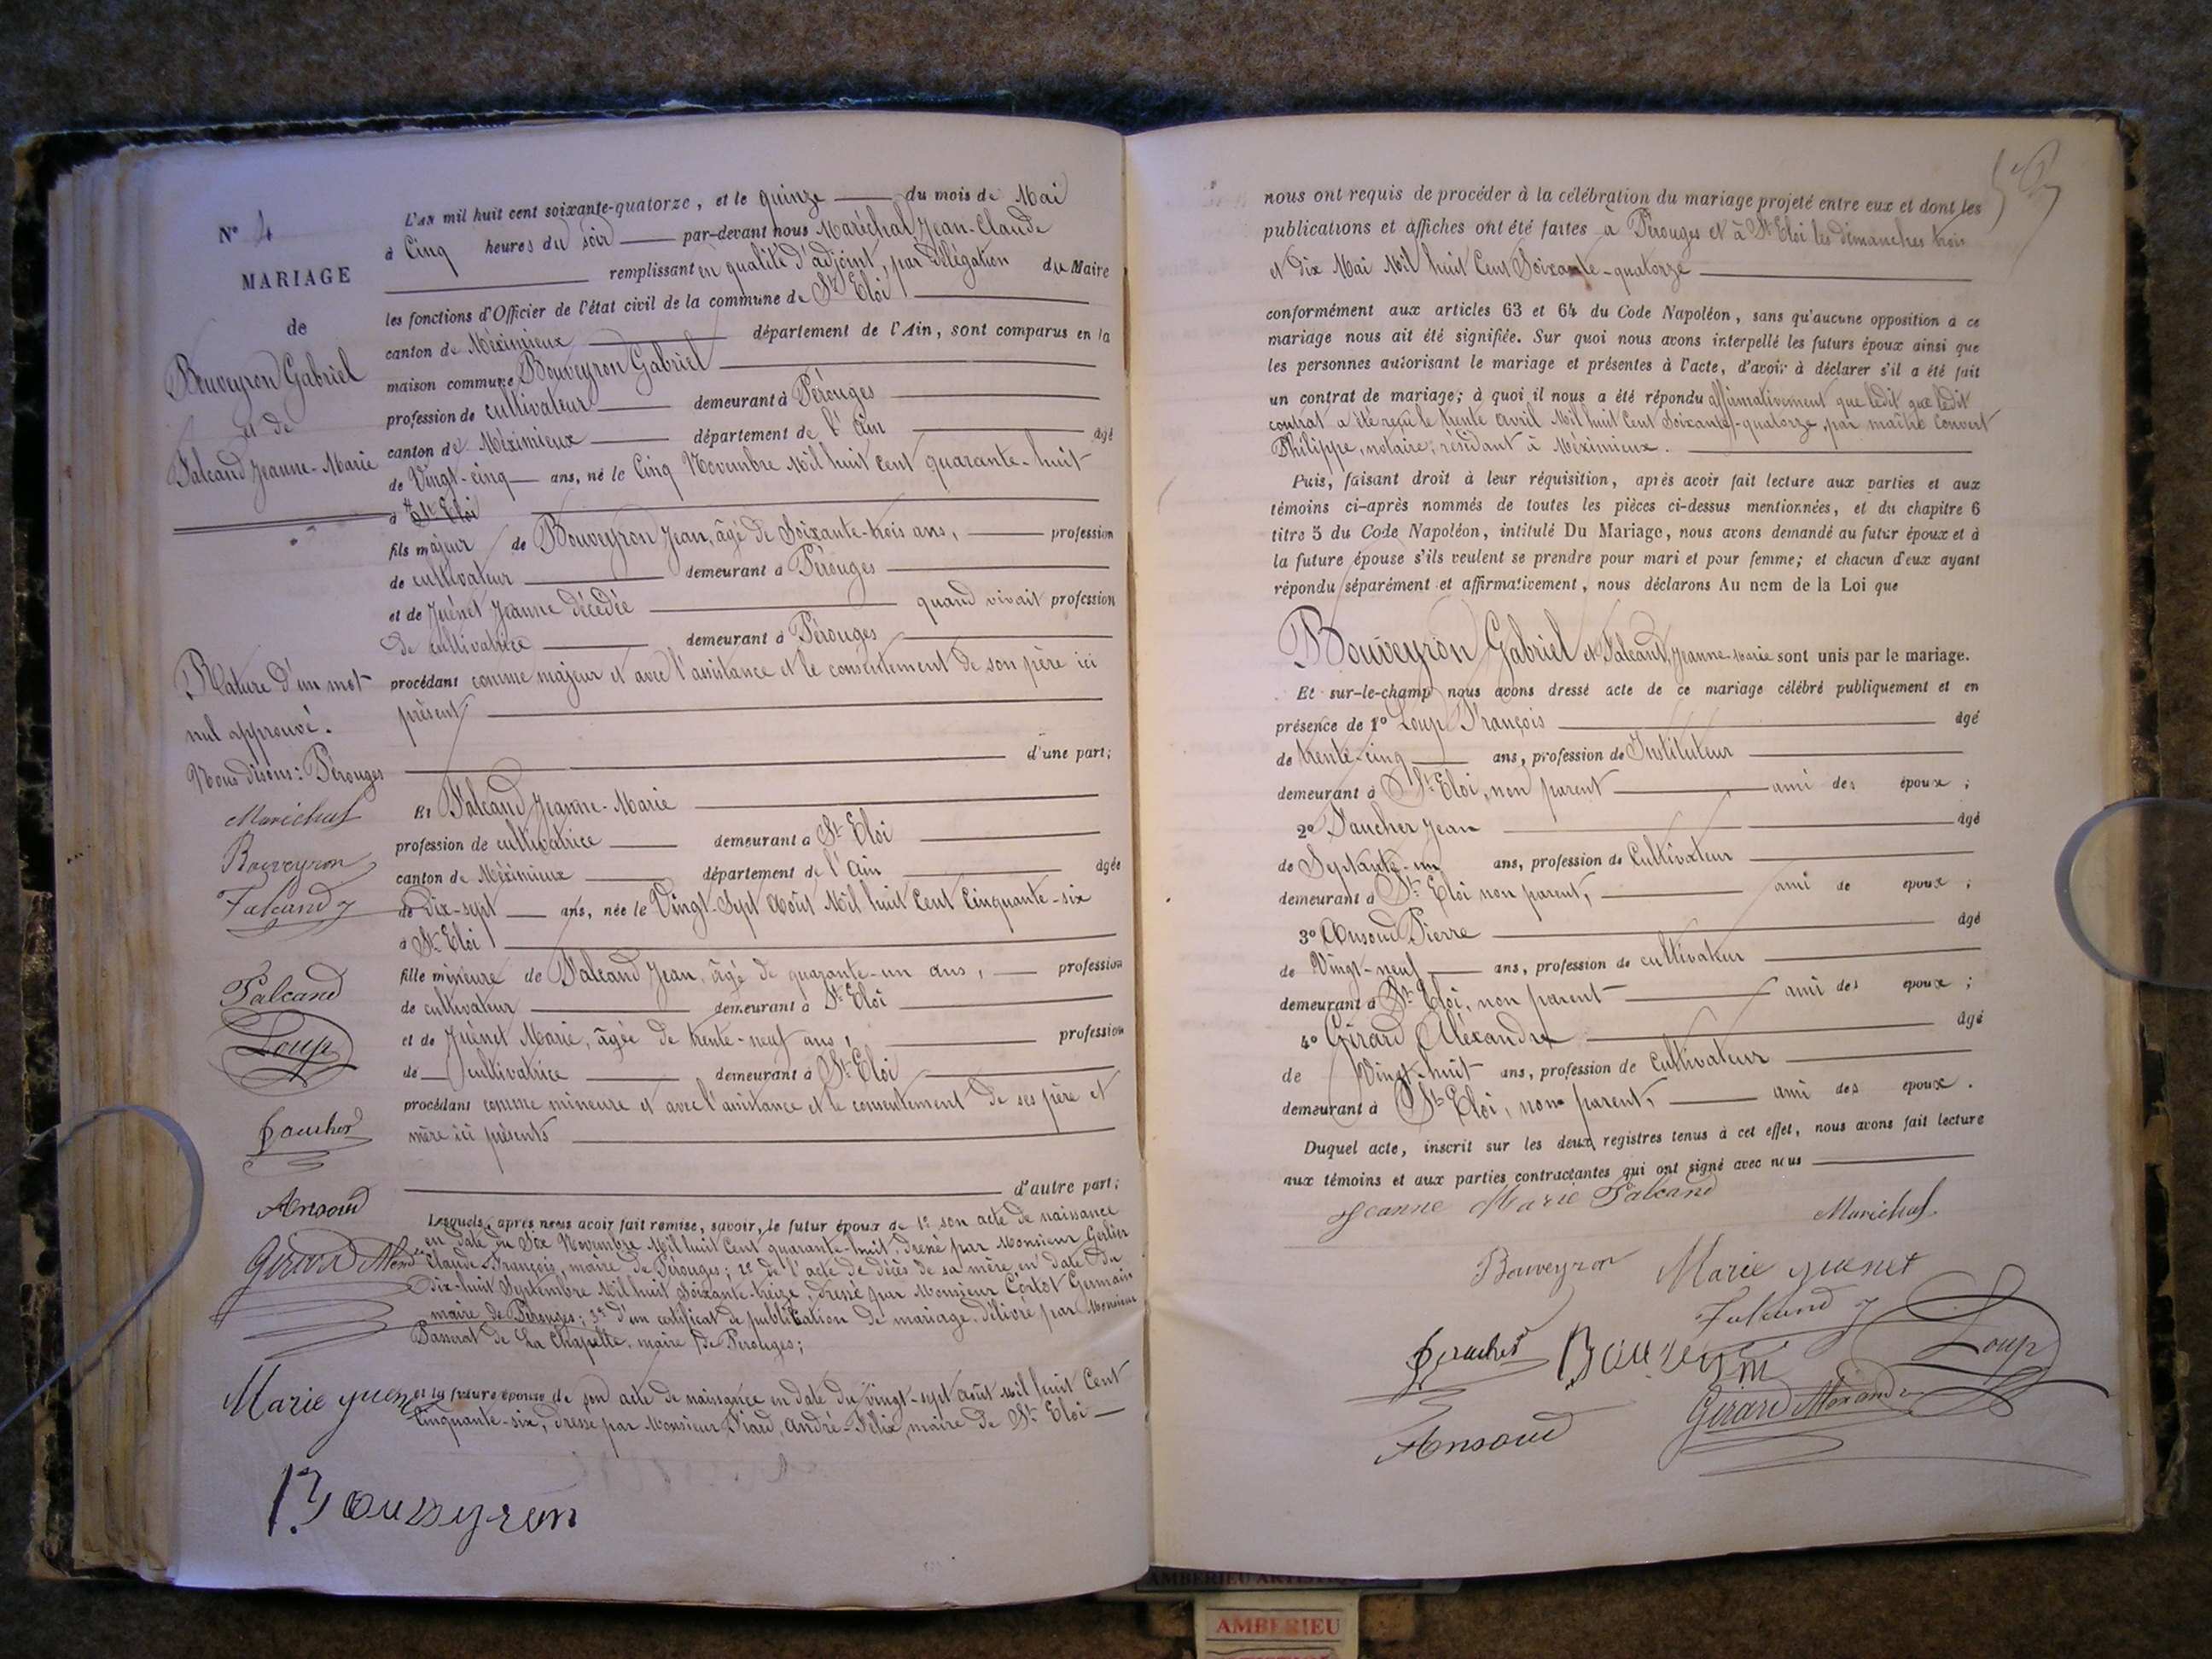 N° 4
MARIAGE
de
Bouveyron Gabriel
et de
Falcand Jeanne-Marie
Rature d'un mot
nul approuvé.
Nous disons: Pérouges
Maréchal
Bouveyron
Falcand
Falcand
Loup
Faucher
Ansoud
Girard Alexandre
Marie Juenet
Bouveyron
L'AN mil huit cent soixante-quatorze, et le quinze du mois de Mai
à Cinq heures du soir par-devant nous Maréchal Jean-Claude
remplissant en qualité d'adjoint, par délégation du Maire
les fonctions d'Officier de l'état civil de la commune de St Eloi
canton de Méximieux département de l'Ain, sont comparus en la
maison commune Bouveyron Gabriel
profession de cultivateur demeurant à Pérouges
canton de Méximieux département de l'Ain âgé
de Vingt-cinq ans, né le Cinq Novembre Mil huit cent quarante-huit
à St Eloi
fils majeur de Bouveyron Jean, âgé de Soixante-trois ans, profession
de cultivateur demeurant à Pérouges
et de Juénet Jeanne décédée quand vivait profession
de cultivatrice demeurant à Pérouges
procédant comme majeur et avec l'assistance et le consentement de son père ici
présent,
d'une part;
Et Falcand Jeanne-Marie
profession de cultivatrice demeurant à St Eloi
canton de Méximieux département de l'Ain âgée
de Dix-sept ans, née le Vingt-Sept Août Mil huit Cent Cinquante-six
à St Eloi
fille mineure de Falcand Jean, âgé de quarante-un ans, profession
de cultivateur demeurant à St Eloi
et de Juénet Marie, âgée de trente-neuf ans, profession
de cultivatrice demeurant à St Eloi
procédant comme mineure et avec l'assistance et le consentement de ses père et
mère ici présents
d'autre part;
Lesquels, après nous avoir fait remise, savoir, le futur époux de 1° son acte de naissance
en date du Six Novembre Mil huit Cent quarante-huit, dressé par Monsieur
Claude François, maire de Pérouges; 2° de l'acte de décès de sa mère en date du
Dix-huit Septembre Mil huit Soixante-treize, dressé par Monsieur Germain
maire de Pérouges; 3° d'un certificat de publication de mariage, délivré par Monsieur
Passerat de La Chapelle, maire de Pérouges;
et la future épouse de son acte de naissance en date du vingt-sept août mil huit Cent
Cinquante-six, dressé par Monsieur André-Félix, maire de St Eloi
nous ont requis de procéder à la célébration du mariage projeté entre eux et dont les
publications et affiches ont été faites à Pérouges et à St Eloi les dimanches trois
et dix Mai Mil huit Cent Soixante-quatorze
conformément aux articles 63 et 64 du Code Napoléon, sans qu'aucune opposition à ce
mariage nous ait été signifiée. Sur quoi nous avons interpellé les futurs époux ainsi que
les personnes autorisant le mariage et présentes à l'acte, d'avoir à déclarer s'il a été fait
un contrat de mariage; à quoi il nous a été répondu affirmativement que ledit que ledit
contrat a été reçu le trente avril Mil huit Cent Soixante-quatorze, par maître Convert
Philippe, notaire, résidant à Méximieux.
Puis, faisant droit à leur réquisition, après avoir fait lecture aux parties et aux
témoins ci-après nommés de toutes les pièces ci-dessus mentionnées, et du chapitre 6
titre 5 du Code Napoléon, intitulé Du Mariage, nous avons demandé au futur époux et à
la future épouse s'ils veulent se prendre pour mari et pour femme; et chacun d'eux ayant
répondu séparément et affirmativement, nous déclarons Au nom de la Loi que
Bouveyron Gabriel et Falcand, Jeanne-Marie sont unis par le mariage.
Et sur-le-champ nous avons dressé acte de ce mariage célébré publiquement et en
présence de 1° Loup François âgé
de trente-cinq ans, profession de Instituteur
demeurant à St Eloi, non parent ami des époux;
2° Faucher Jean âgé
de Septante-un ans, profession de Cultivateur
demeurant à St Eloi non parent, ami de époux;
3° Ansoud Pierre âgé
de Vingt-neuf ans, profession de cultivateur
demeurant à St Eloi, non parent ami des époux;
4° Girard Alexandre âgé
de Vingt-huit ans, profession de Cultivateur
demeurant à St Eloi, non parent, ami des époux.
Duquel acte, inscrit sur les deux registres tenus à cet effet, nous avons fait lecture
aux témoins et aux parties contractantes qui ont signé avec nous
Jeanne Marie Falcand
Maréchal
Bouveyron Marie Juenet
Falcand
Faucher Bouveyron Loup
Girard Alexandre
Ansoud
AMBERIEU ARTISTIQUE
AMBERIEU